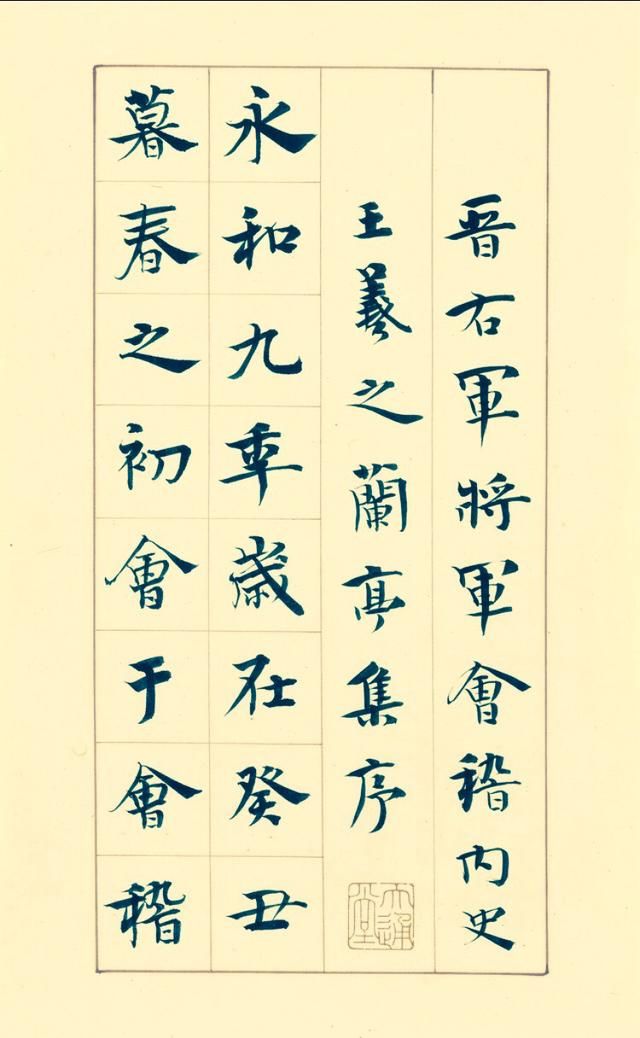 晋右軍將軍會稽内史
王羲之蘭亭集序
永和九年歲在癸丑
暮春之初會于會稽